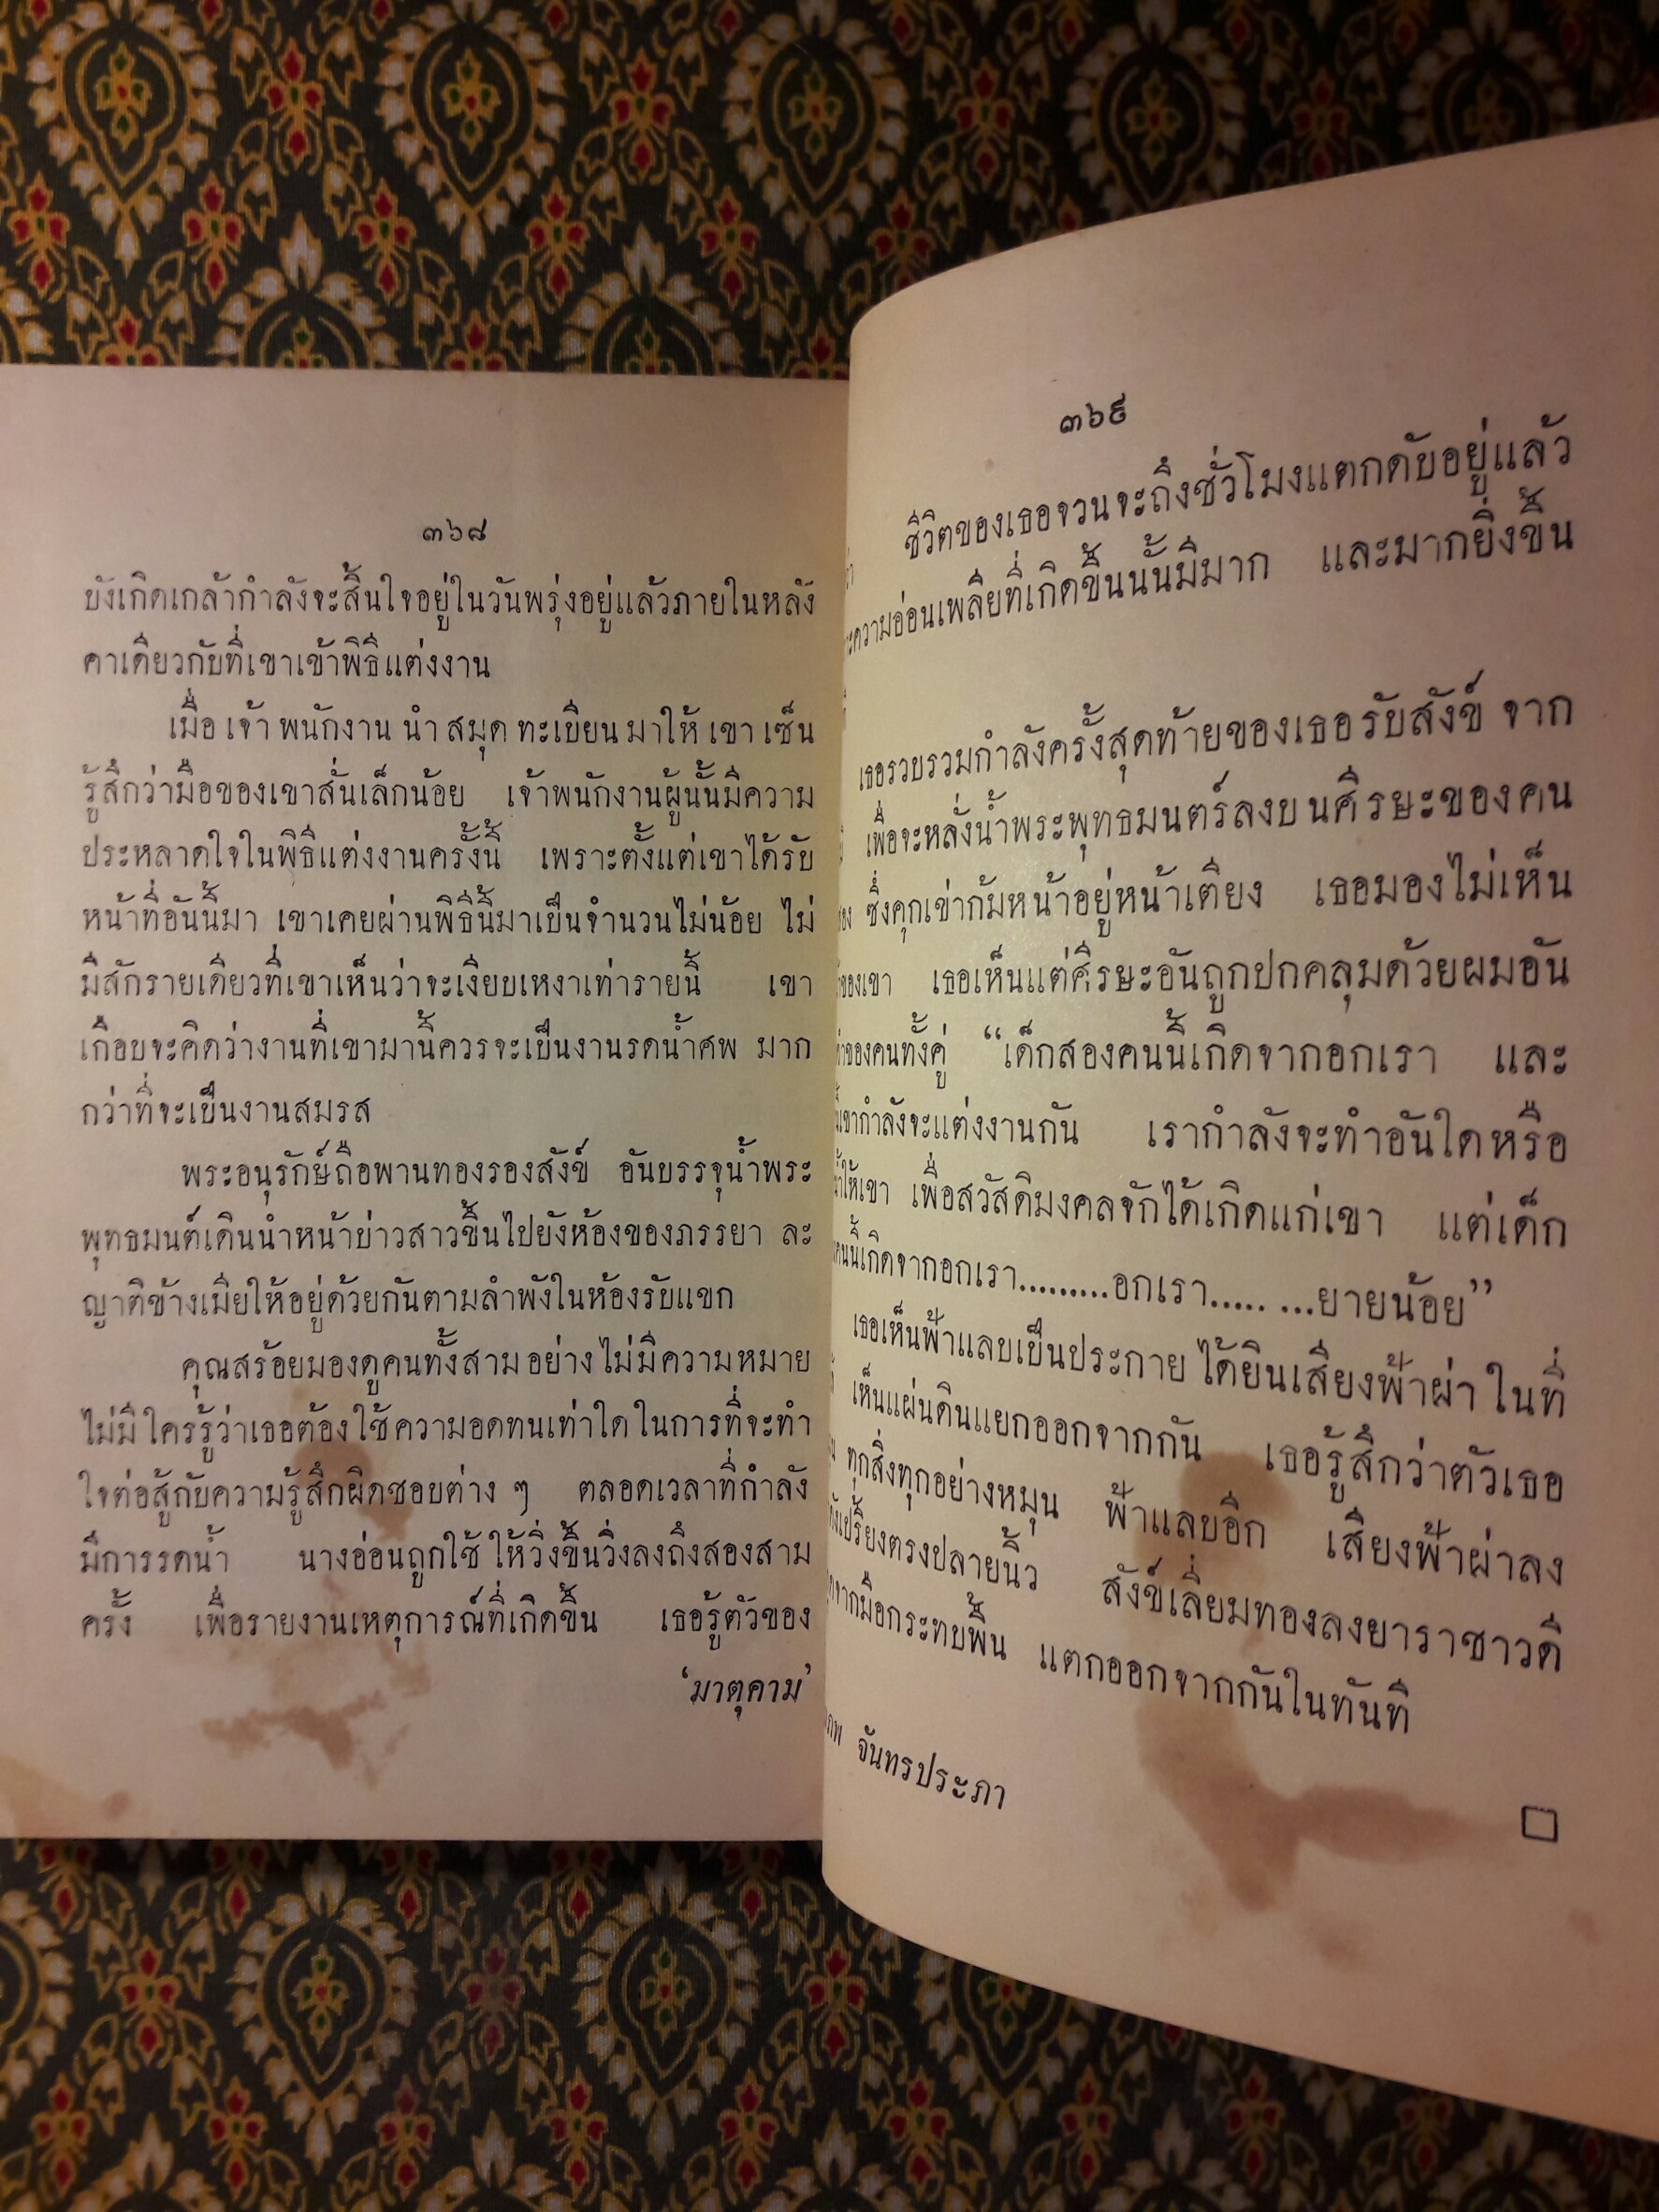 ๓๖๘
บังเกิดเกล้ากำลังจะสิ้นใจอยู่ในวันพรุ่งอยู่แล้วภายในหลัง
คาเดียวกับที่เขาเข้าพิธีแต่งงาน
เมื่อ เจ้า พนักงาน นำ สมุด ทะเบียน มาให้ เขา เซ็น
รู้สึกว่ามือของเขาสั่นเล็กน้อย เจ้าพนักงานผู้นั้นมีความ
ประหลาดใจในพิธีแต่งงานครั้งนี้ เพราะตั้งแต่เขาได้รับ
หน้าที่อันนี้มา เขาเคยผ่านพิธีนี้มาเป็นจำนวนไม่น้อย ไม่
มีสักรายเดียวที่เขาเห็นว่าจะเงียบเหงาเท่ารายนี้ เขา
เกือบจะคิดว่างานที่เขามานี้ควรจะเป็นงานรดน้ำศพ มาก
กว่าที่จะเป็นงานสมรส
พระอนุรักษ์ถือพานทองรองสังข์ อันบรรจุน้ำพระ
พุทธมนต์เดินนำหน้าบ่าวสาวขึ้นไปยังห้องของภรรยา ละ
ญาติข้างเมียให้อยู่ด้วยกันตามลำพังในห้องรับแขก
คุณสร้อยมองดูคนทั้งสามอย่างไม่มีความหมาย
ไม่มีใครรู้ว่าเธอต้องใช้ความอดทนเท่าใดในการที่จะทำ
ใจต่อสู้กับความรู้สึกผิดชอบต่าง ๆ ตลอดเวลาที่กำลัง
มีการรดน้ำ นางอ่อนถูกใช้ให้วิ่งขึ้นวิ่งลงถึงสองสาม
ครั้ง เพื่อรายงานเหตุการณ์ที่เกิดขึ้น เธอรู้ตัวของ
‘มาตุคาม’
๓๖๙
ชีวิตของเธอจวนจะถึงชั่วโมงแตกดับอยู่แล้ว
ความอ่อนเพลียที่เกิดขึ้นนั้นมีมาก และมากยิ่งขึ้น
เธอรวบรวมกำลังครั้งสุดท้ายของเธอรับสังข์ จาก
เพื่อจะหลั่งน้ำพระพุทธมนตร์ลงบนศีรษะของคน
ซึ่งคุกเข่าก้มหน้าอยู่หน้าเตียง เธอมองไม่เห็น
ของเขา เธอเห็นแต่ศีรษะอันถูกปกคลุมด้วยผมอัน
ของคนทั้งคู่ “เด็กสองคนนี้เกิดจากอกเรา และ
เขากำลังจะแต่งงานกัน เรากำลังจะทำอันใดหรือ
ให้เขา เพื่อสวัสดิมงคลจักได้เกิดแก่เขา แต่เด็ก
คนนี้เกิดจากอกเรา.........อกเรา..... ...ยายน้อย”
เธอเห็นฟ้าแลบเป็นประกาย ได้ยินเสียงฟ้าผ่า ในที่
เห็นแผ่นดินแยกออกจากกัน เธอรู้สึกว่าตัวเธอ
ทุกสิ่งทุกอย่างหมุน ฟ้าแลบอีก เสียงฟ้าผ่าลง
เปรี้ยงตรงปลายนิ้ว สังข์เลี่ยมทองลงยาราชาวดี
จากมือกระทบพื้น แตกออกจากกันในทันที
จันทรประภา